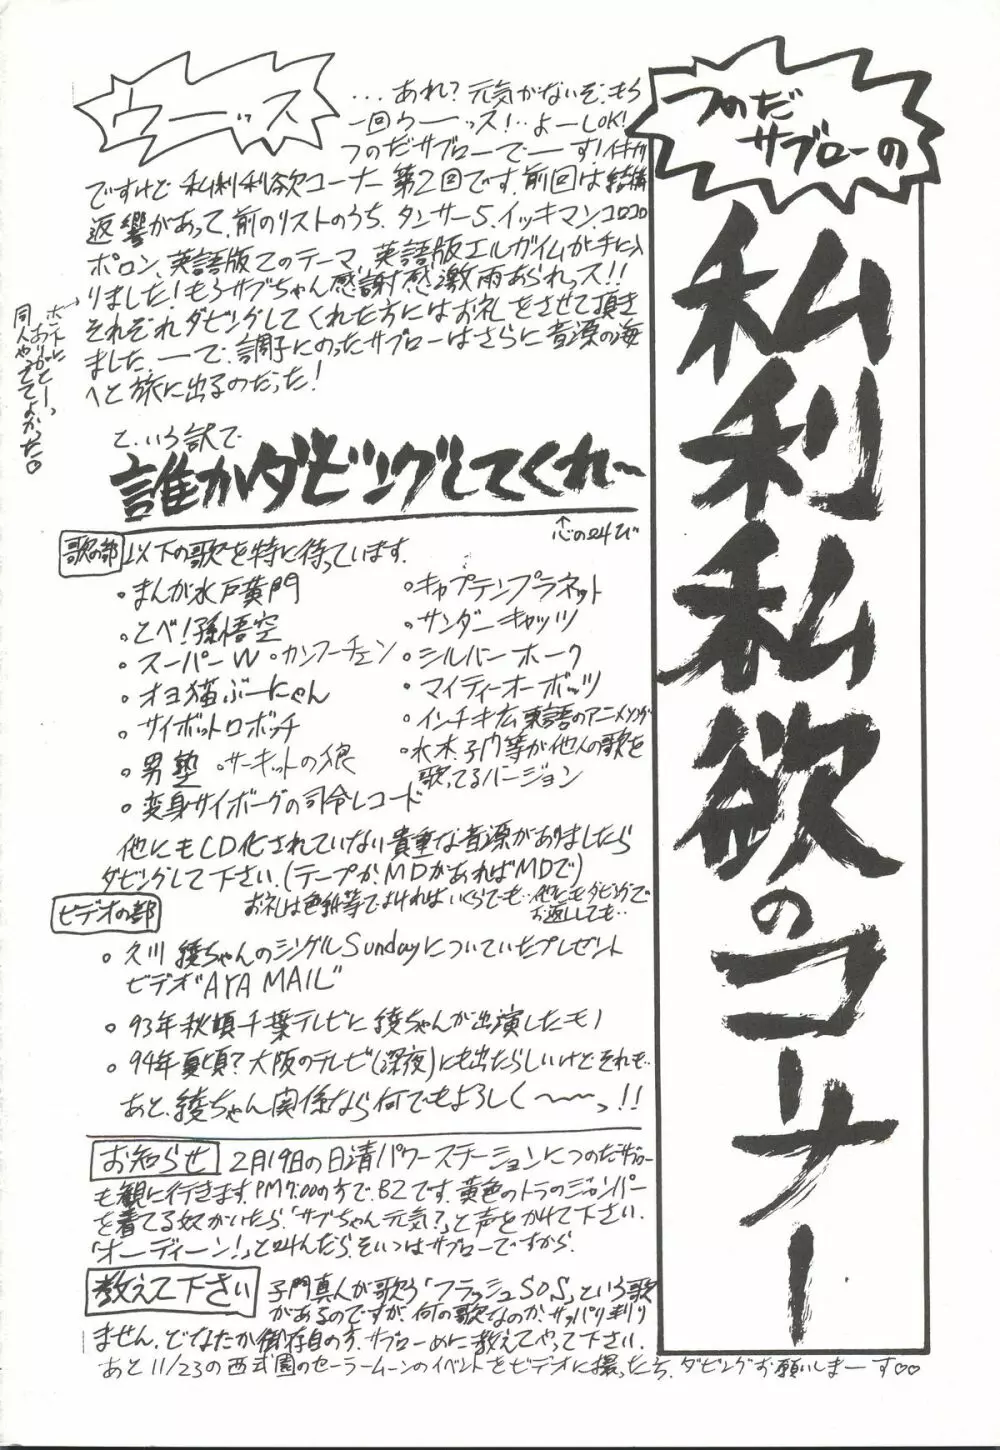 つのだ
サブローの
私利私欲のコーナー
ウーッス
・・・あれ?元気がないぞ、もう
一回ウーーッス!・・よーしOK!
つのだサブローでーーす!イキナリ
ですけど私利私欲コーナー第2回です。前回は結構
返響があって、前のリストのうち、タンサー5、イッキマン、コロコロ
ポロン、英語版Zのテーマ、英語版エルガイムが手に入
りました!もうサブちゃん感謝感激雨あられっス!!
それぞれダビングしてくれた方にはお礼をさせて頂き
ました。ーーで、調子にのったサブローはさらに音源の海
へと旅に出るのだった!
ホントに
ありがとーっ
同人やっててよかった♡
と、いう訳で
誰かダビングしてくれ〜
↑
心の叫び
歌の部
以下の歌を特に待っています。
・まんが水戸黄門
・とべ!孫悟空
・スーパーW ・カンフーチェン
・オヨ猫ぶーにゃん
・サイボットロボッチ
・男塾 ・サーキットの狼
・変身サイボーグの司令レコード
・キャプテンプラネット
・サンダーキャッツ
・シルバーホーク
・マイティーオーボッツ
・インチキ広東語のアニメソング
・水木、子門等が他人の歌を
歌ってるバージョン
他にもCD化されていない貴重な音源がありましたら
ダビングして下さい。(テープか、MDがあればMDで)
お礼は色紙等でよければいくらでも・・他にもダビングで
お返ししても・・
ビデオの部
・久川綾ちゃんのシングルSundayについていたプレゼント
ビデオ"AYA MAIL"
・93年秋頃千葉テレビに綾ちゃんが出演したモノ
・94年夏頃?大阪のテレビ(深夜)にも出たらしいけどそれも・・
あと、綾ちゃん関係なら何でもよろしく〜〜っ!!
お知らせ
2月19日の日清パワーステーションにつのだサブロー
も観に行きます。PM7:00の方で、B2です。黄色のトラのジャンパー
を着てる奴がいたら、「サブちゃん元気?」と声をかけて下さい。
「オーディーン!」と叫んだら、そいつはサブローですから。
教えて下さい
子門真人が歌う「フラッシュSOS」という歌
があるのですが、何の歌なのか、サッパリ判り
ません。どなたか御存自の方、サブローめに教えてやって下さい。
あと11/23の西武園のセーラームーンのイベントをビデオに撮った方、ダビングお願いしまーす♡♡